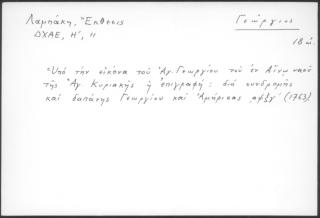 Λαμπάκη, Ἔκθεσις
ΔΧΑΕ, Η', 11
Γεώργιος
18 αἰ.
Ὑπό τήν εἰκόνα τοῦ Ἁγ. Γεωργίου τοῦ ἐν Αἴνῳ ναοῦ
τῆς Ἁγ. Κυριακῆς ἡ ἐπιγραφή: διά συνδρομῆς
καί δαπάνης Γεωργίου καί Ἀμήρισας ͵αψξγ' (1763)